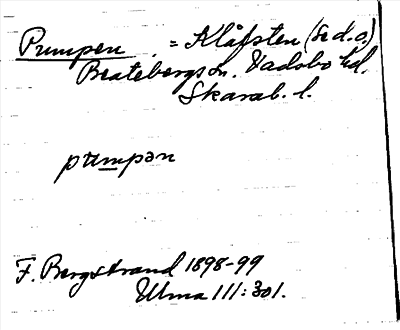 Pumpen = Klåfsten (se d.o)
Beatebergs sn. Vadsbo hd.
Skarab. l.
pumpən
F. Bergstrand 1898-99
Ulma 111:301.